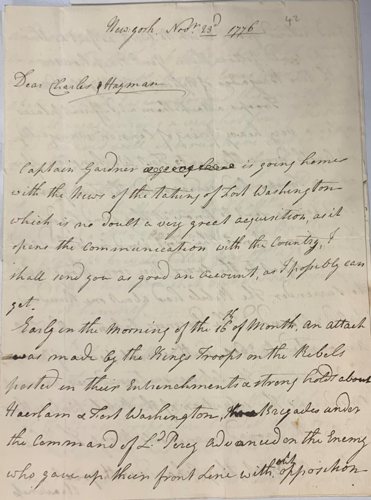 42
New york. Novr. 23d 1776
Dear Charles Hayman
Captain Gardner is going home
with the News of the taking of Fort Washington
which is no doubt a very great acquisition, as it
opens the communication with the Country, I
shall send you as good an account, as I possibly can
get.
Early on the Morning of the 16th of Month, an attack
was made by the Kings Troops on the Rebels
posted in their Entrenchments & strong holds about
Haerlam & Fort Washington, Brigades under
the Command of Ld. Percy advanced on the Enemy
who gave up their front Line with opposition